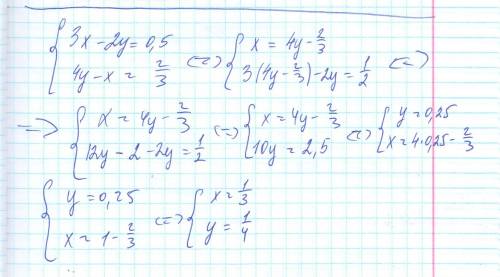 { 3x - 2y = 0,5 ; 4y - x = 2/3 (=) { x = 4y - 2/3 ; 3(4y - 2/3) - 2y = 1/2 (=)
=> { x = 4y - 2/3 ; 12y - 2 - 2y = 1/2 (=) { x = 4y - 2/3 ; 10y = 2,5 (=) { y = 0,25 ; x = 4·0,25 - 2/3
{ y = 0,25 ; x = 1 - 2/3 (=) { x = 1/3 ; y = 1/4